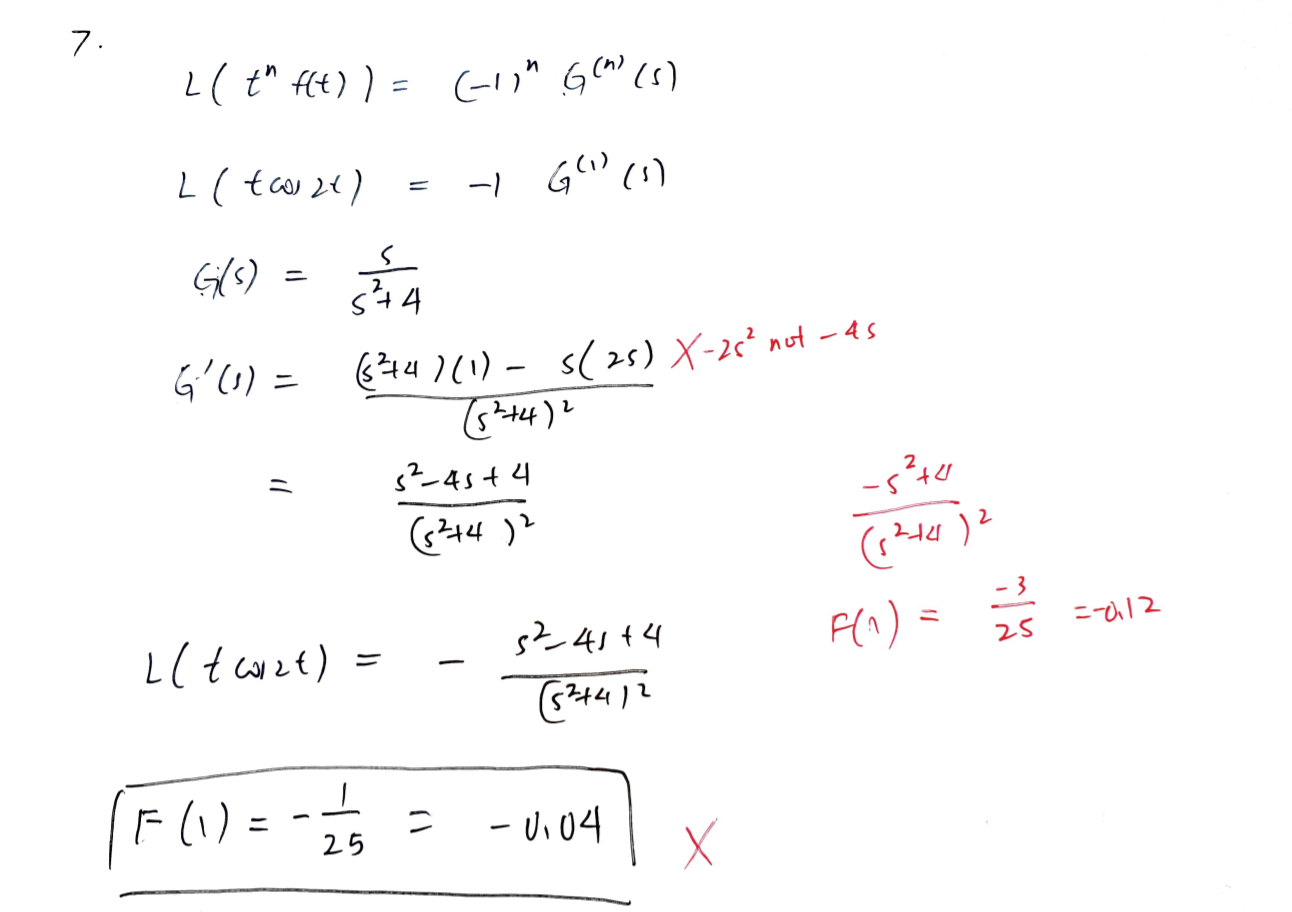 7.
L( tⁿ f(t) ) = (-1)ⁿ G⁽ⁿ⁾(s)
L( t cos 2t) = -1 G⁽¹⁾(s)
G(s) = s / (s²+4)
G'(s) = ((s²+4)(1) - s(2s)) / (s²+4)² X -2s² not -4s
= (s²-4s+4) / (s²+4)²
(-s²+4) / (s²+4)²
L(t cos 2t) = - (s²-4s+4) / (s²+4)²
F(1) = -3/25 = -0.12
F(1) = -1/25 = -0.04 X